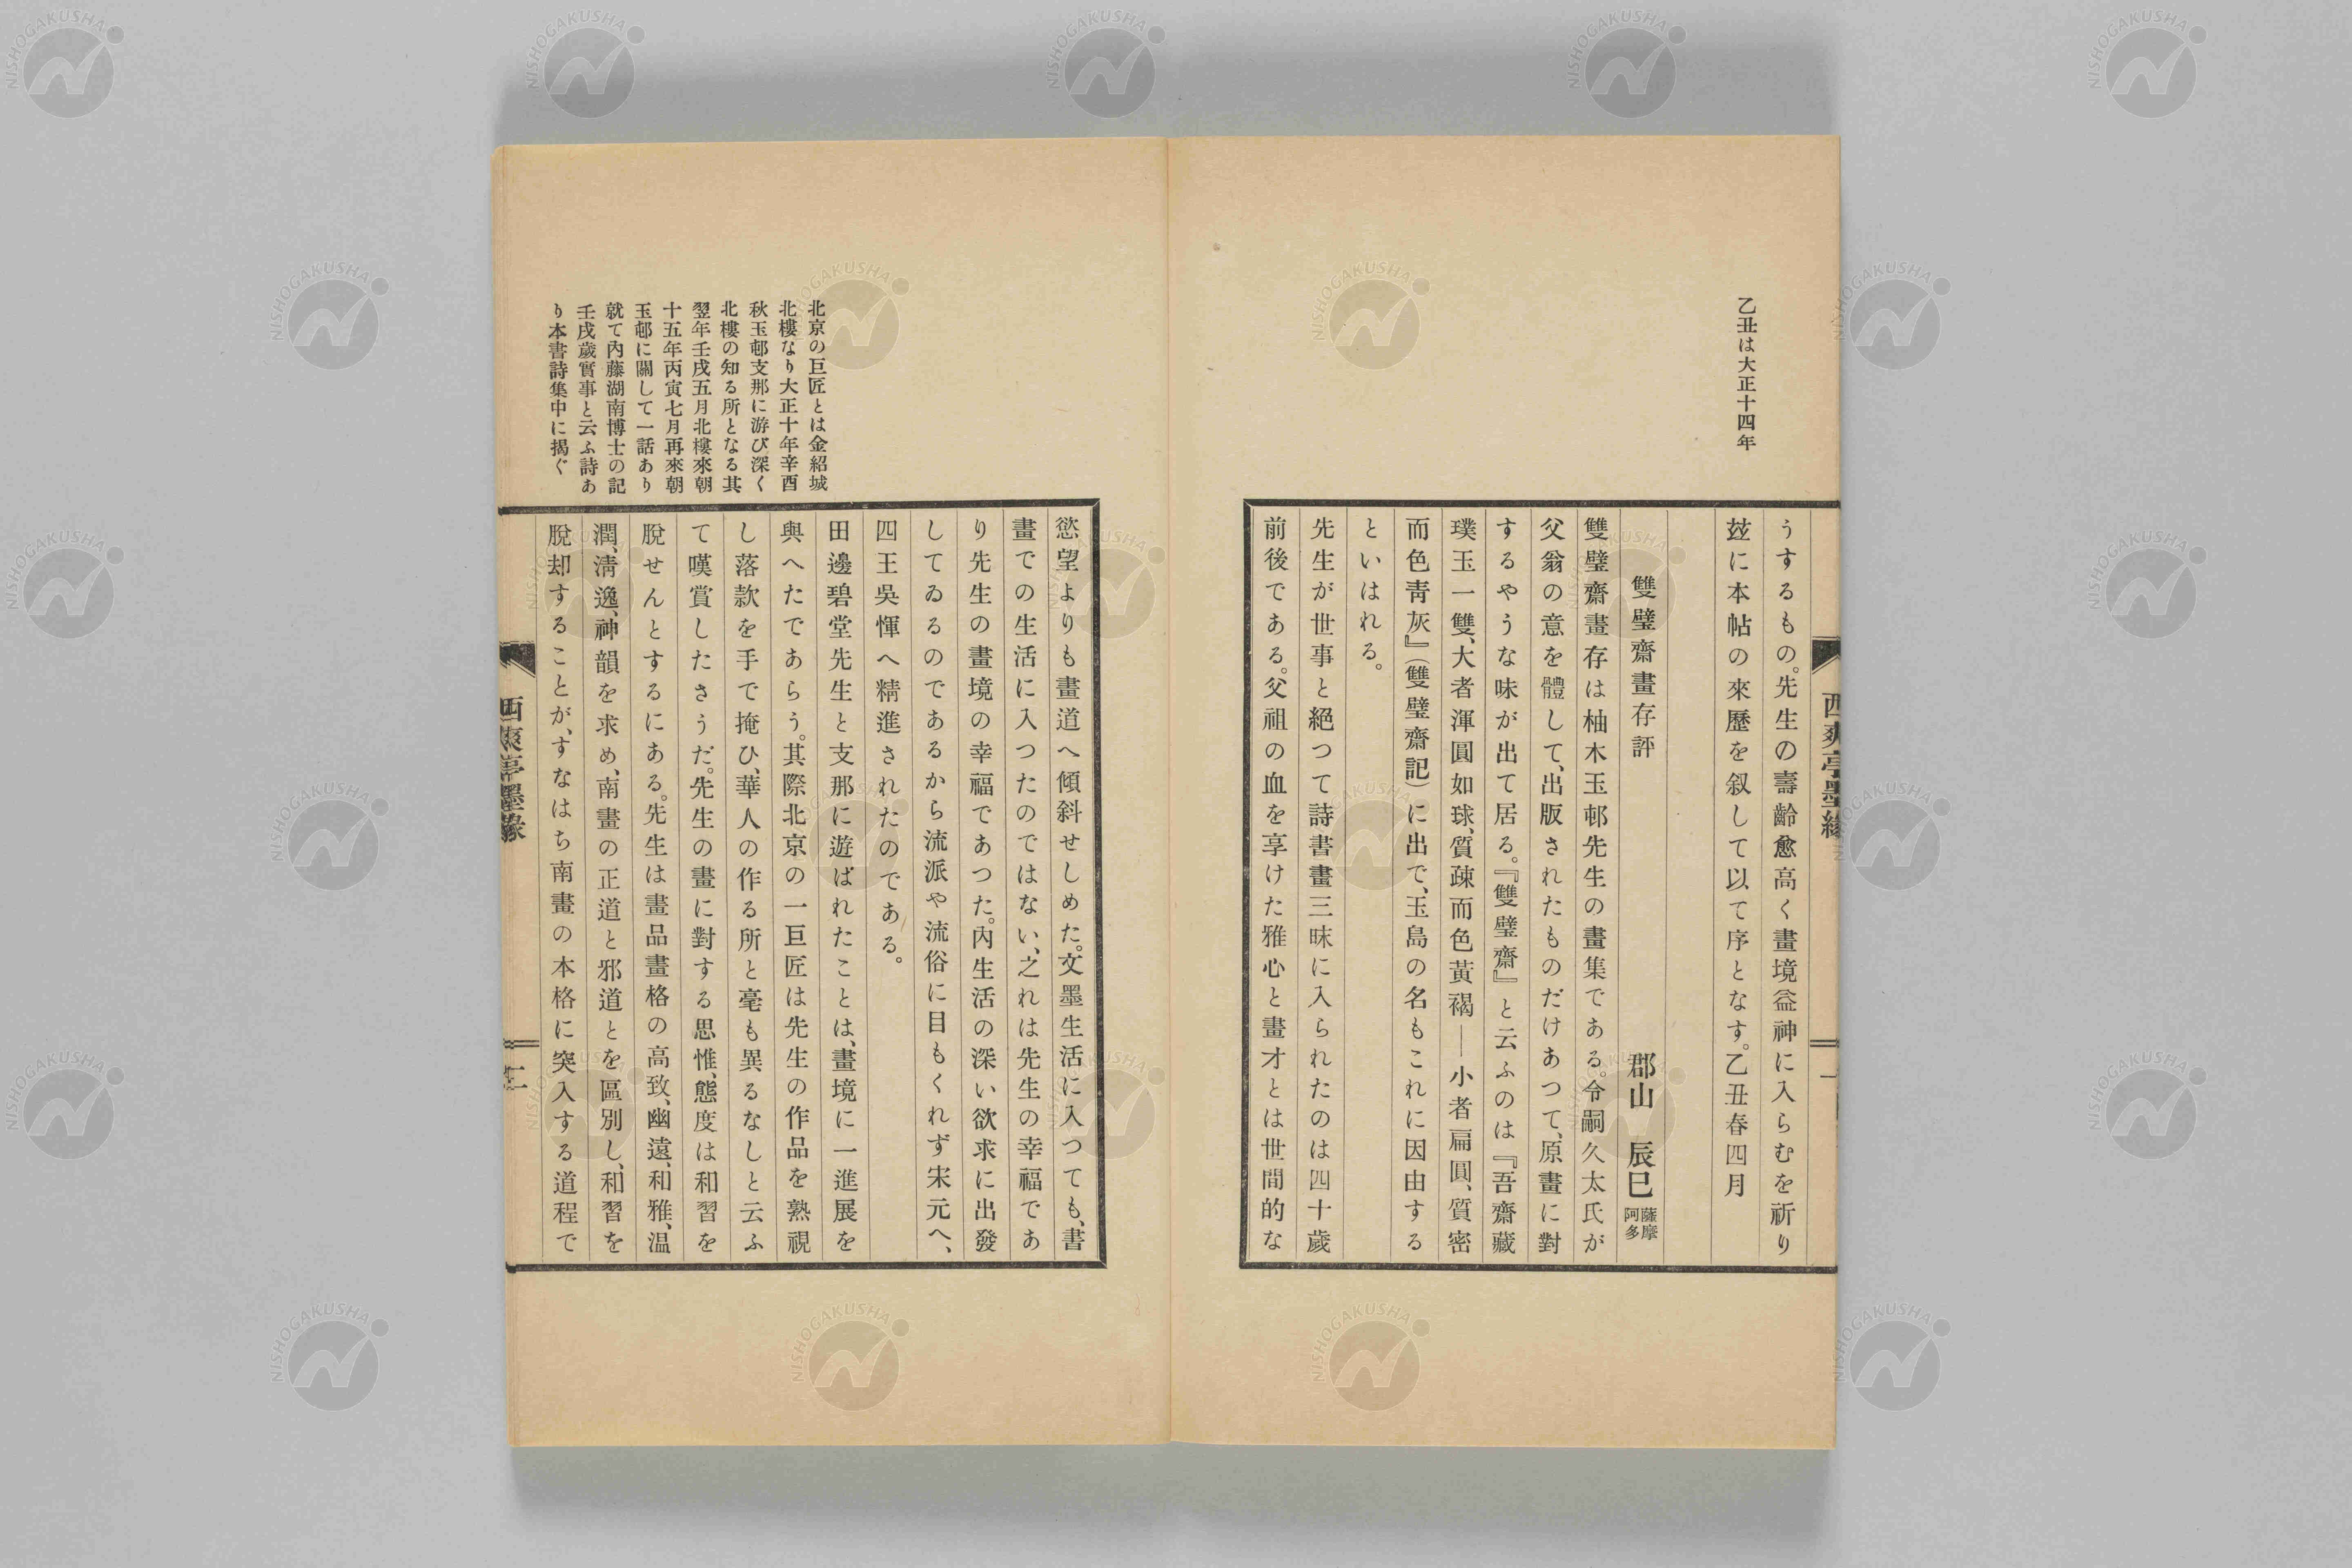 乙丑は大正十四年
うするもの。先生の壽齡愈高く畫境益神に入らむを祈り
玆に本帖の來歷を叙して以て序となす。乙丑春四月
雙璧齋畫存評
郡山 辰巳 薩摩阿多
雙璧齋畫存は柚木玉邨先生の畫集である。令嗣久太氏が
父翁の意を體して、出版されたものだけあつて、原畫に對
するやうな味が出て居る。『雙璧齋』と云ふのは『吾齋藏
璞玉一雙、大者渾圓如球、質疎而色黃褐―小者扁圓、質密
而色靑灰』(雙璧齋記)に出で、玉島の名もこれに因由する
といはれる。
先生が世事と絕つて詩書畫三昧に入られたのは四十歲
前後である。父祖の血を享けた雅心と畫才とは世間的な
西爽亭墨緣
北京の巨匠とは金紹城
北樓なり大正十年辛酉
秋玉邨支那に游び深く
北樓の知る所となる其
翌年壬戌五月北樓來朝
十五年丙寅七月再來朝
玉邨に關して一話あり
就て內藤湖南博士の記
壬戌歲實事と云ふ詩あ
り本書詩集中に揭ぐ
慾望よりも畫道へ傾斜せしめた。文墨生活に入つても、書
畫での生活に入つたのではない、之れは先生の幸福であ
り先生の畫境の幸福であつた。內生活の深い欲求に出發
してゐるのであるから流派や流俗に目もくれず宋元へ、
四王吳惲へ精進されたのである。
田邊碧堂先生と支那に遊ばれたことは、畫境に一進展を
與へたであらう。其際北京の一巨匠は先生の作品を熟視
し落款を手で掩ひ、華人の作る所と毫も異るなしと云ふ
て嘆賞したさうだ。先生の畫に對する思惟、態度は和習を
脫せんとするにある。先生は畫品畫格の高致、幽遠、和雅、温
潤、淸逸、神韻を求め、南畫の正道と邪道とを區別し、和習を
脫却することが、すなはち南畫の本格に突入する道程で
西爽亭墨緣
二
NISHOGAKUSHA